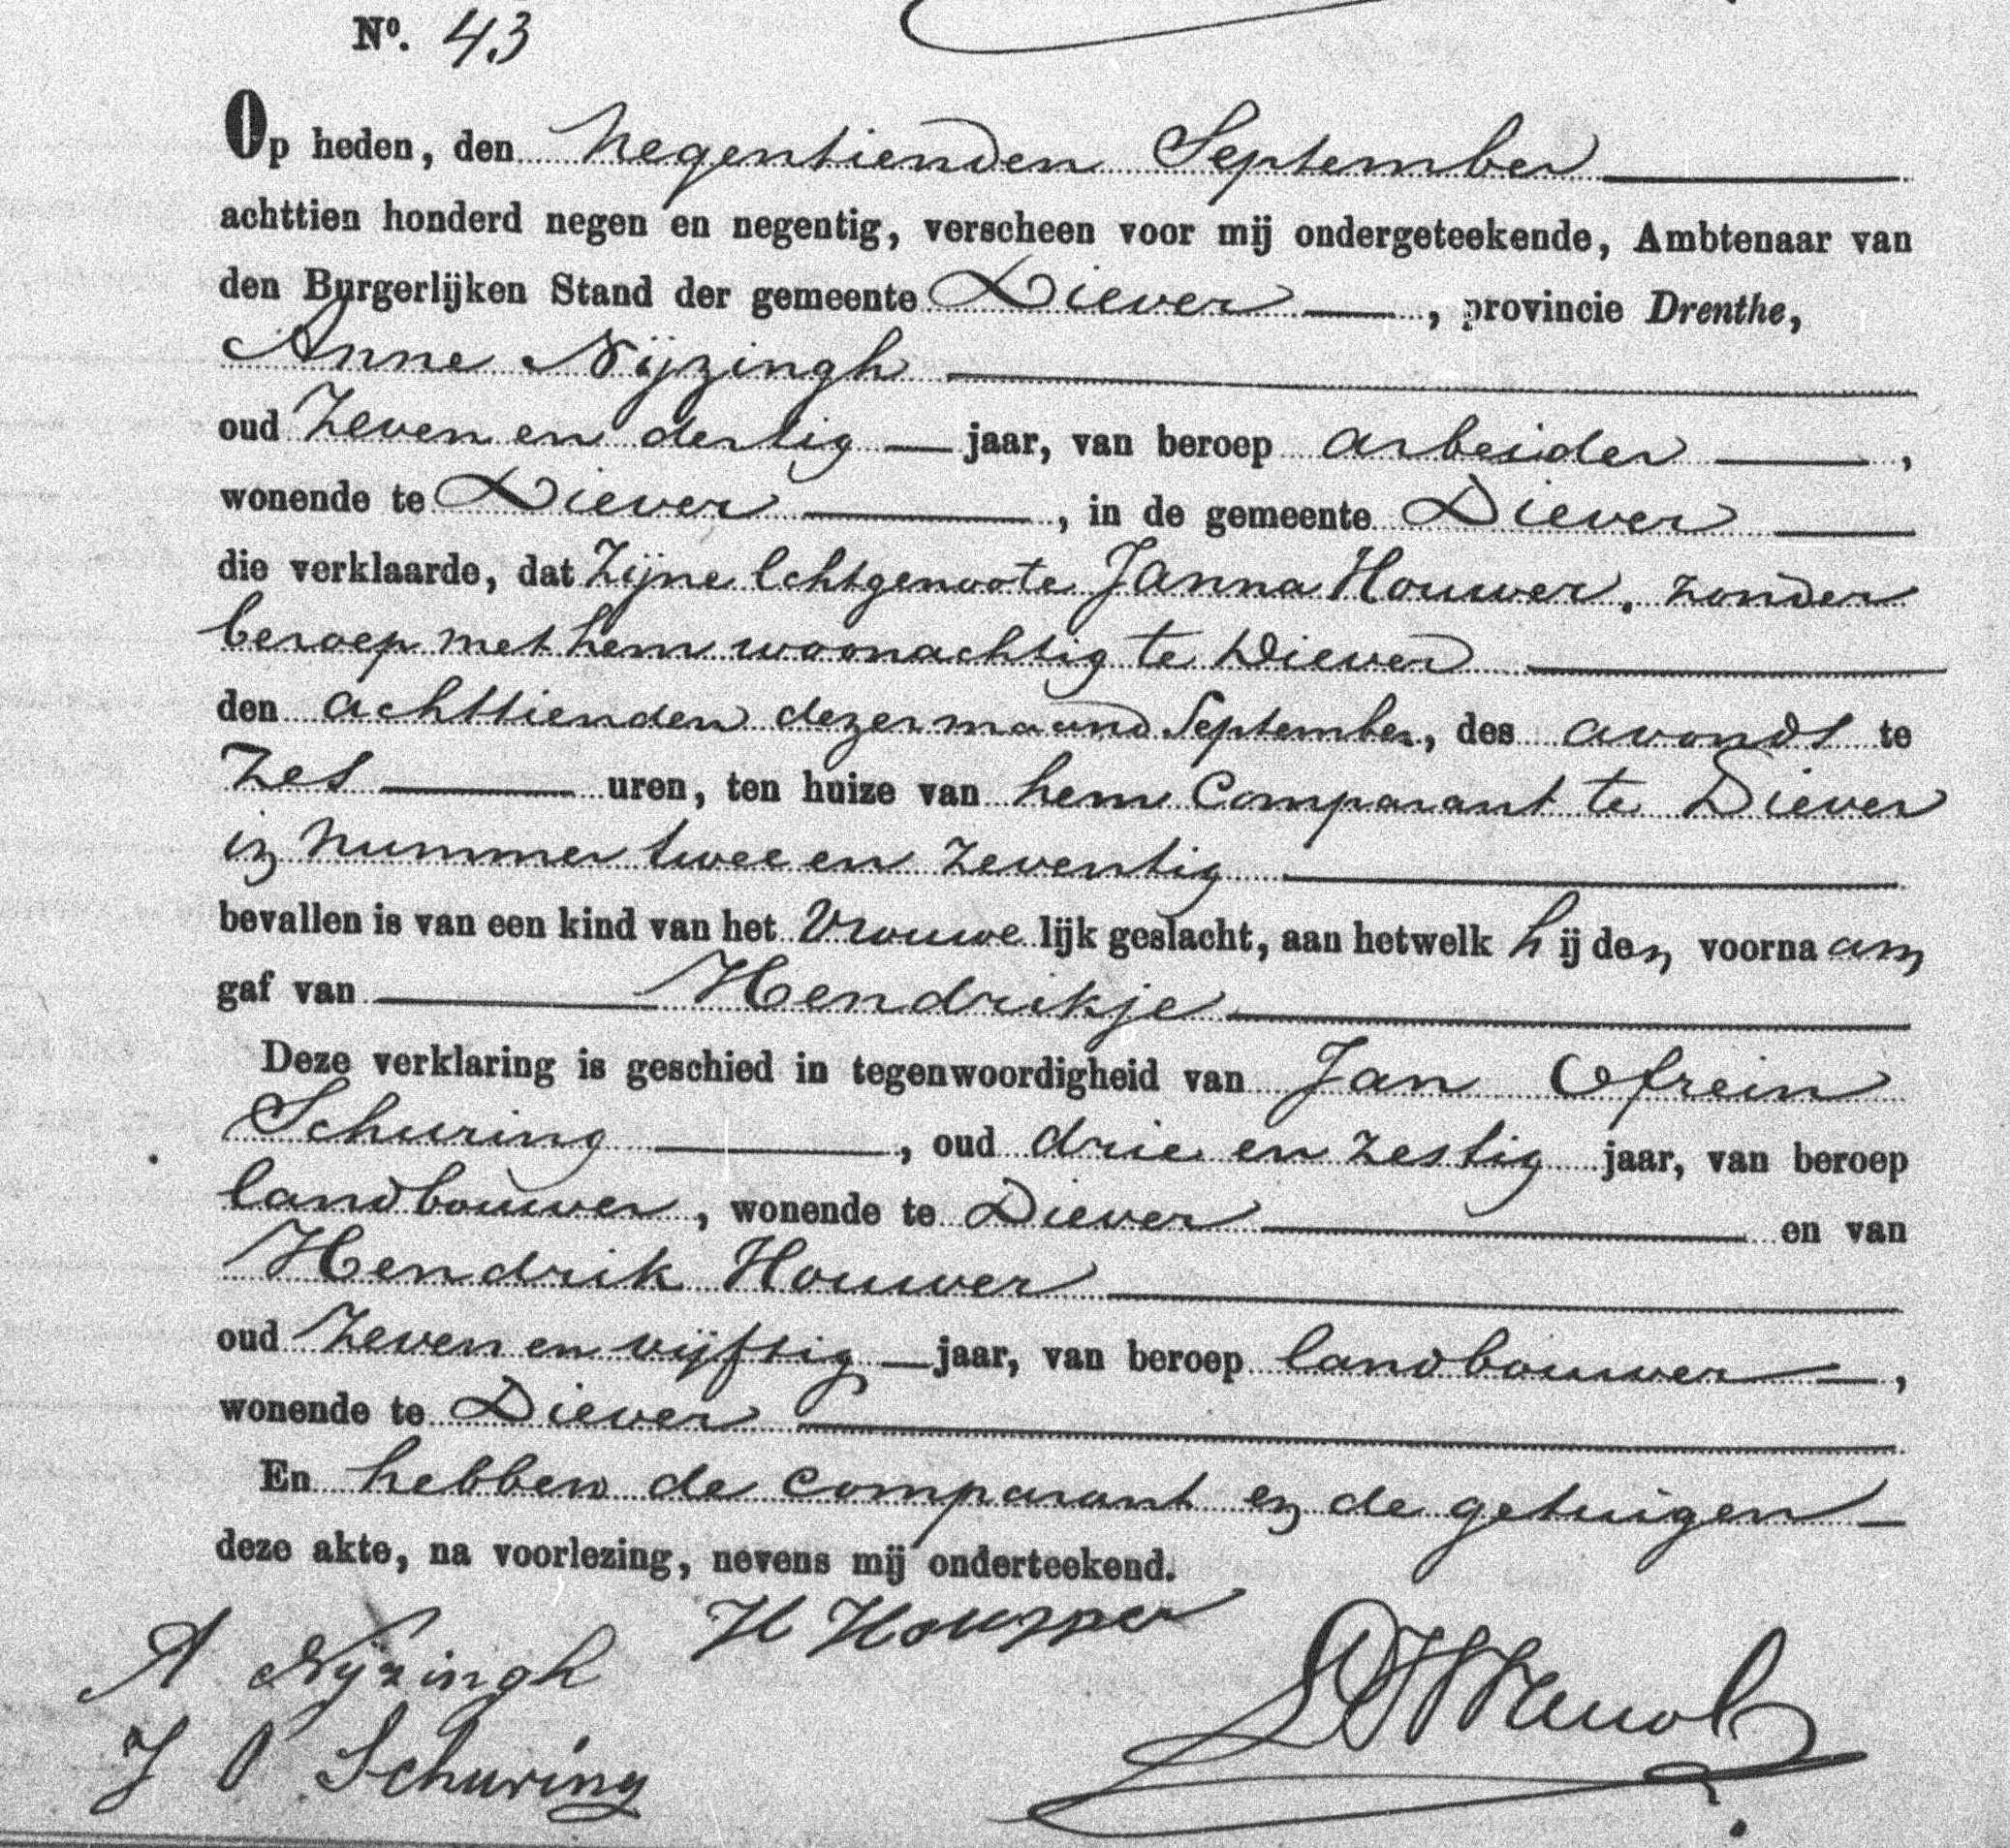 No. 43
Op heden, den Negentienden September
achttien honderd negen en negentig, verscheen voor mij ondergeteekende, Ambtenaar van
den Burgerlijken Stand der gemeente Diever, provincie Drenthe,
Anne Nijzingh
oud Zeven en dertig jaar, van beroep arbeider,
wonende te Diever, in de gemeente Diever
die verklaarde, dat Zijne Echtgenoote Janna Houwer, zonder
beroep met hem woonachtig te Diever
den achttienden dezer maand September, des avonds te
Zes uren, ten huize van hem Comparant te Diever
in Nummer twee en zeventig
bevallen is van een kind van het Vrouwelijk geslacht, aan hetwelk hij den voornaam
gaf van Hendrikje
Deze verklaring is geschied in tegenwoordigheid van Jan
Schuring, oud drie en zestig jaar, van beroep
landbouwer, wonende te Diever en van
Hendrik Houwer
oud Zeven en vijftig jaar, van beroep landbouwer,
wonende te Diever
En hebben de comparant en de getuigen
deze akte, na voorlezing, nevens mij onderteekend.
H Houwer
A Nijzingh
J Schuring